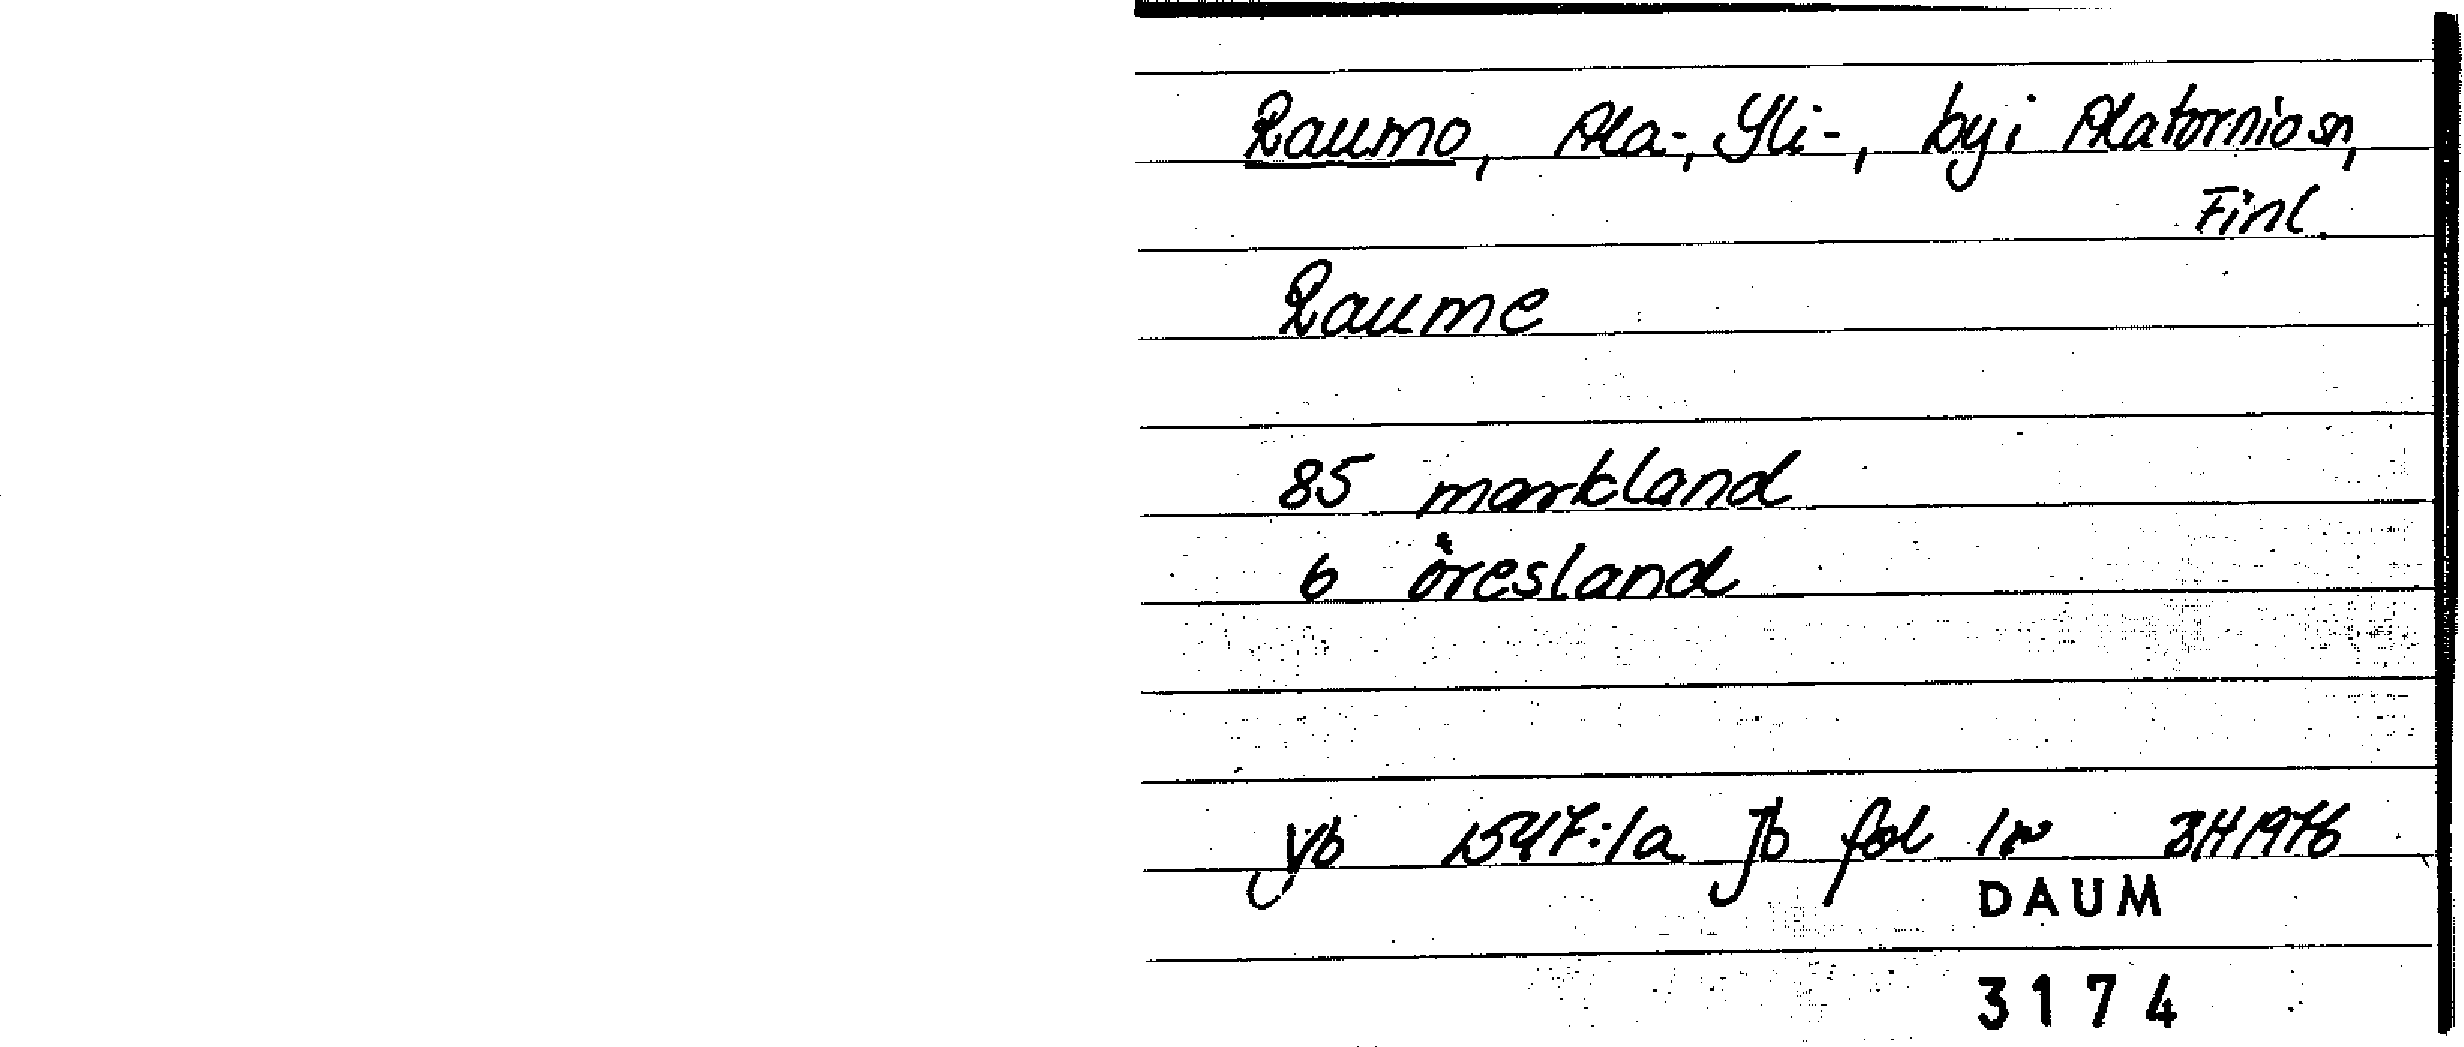 Raumo, Ala-, Yli-, by i Alatornio sn,
Finl.
Raume
85 markland
6 öresland
Vb 1547:1a Jb fol 1v
DAUM
3174